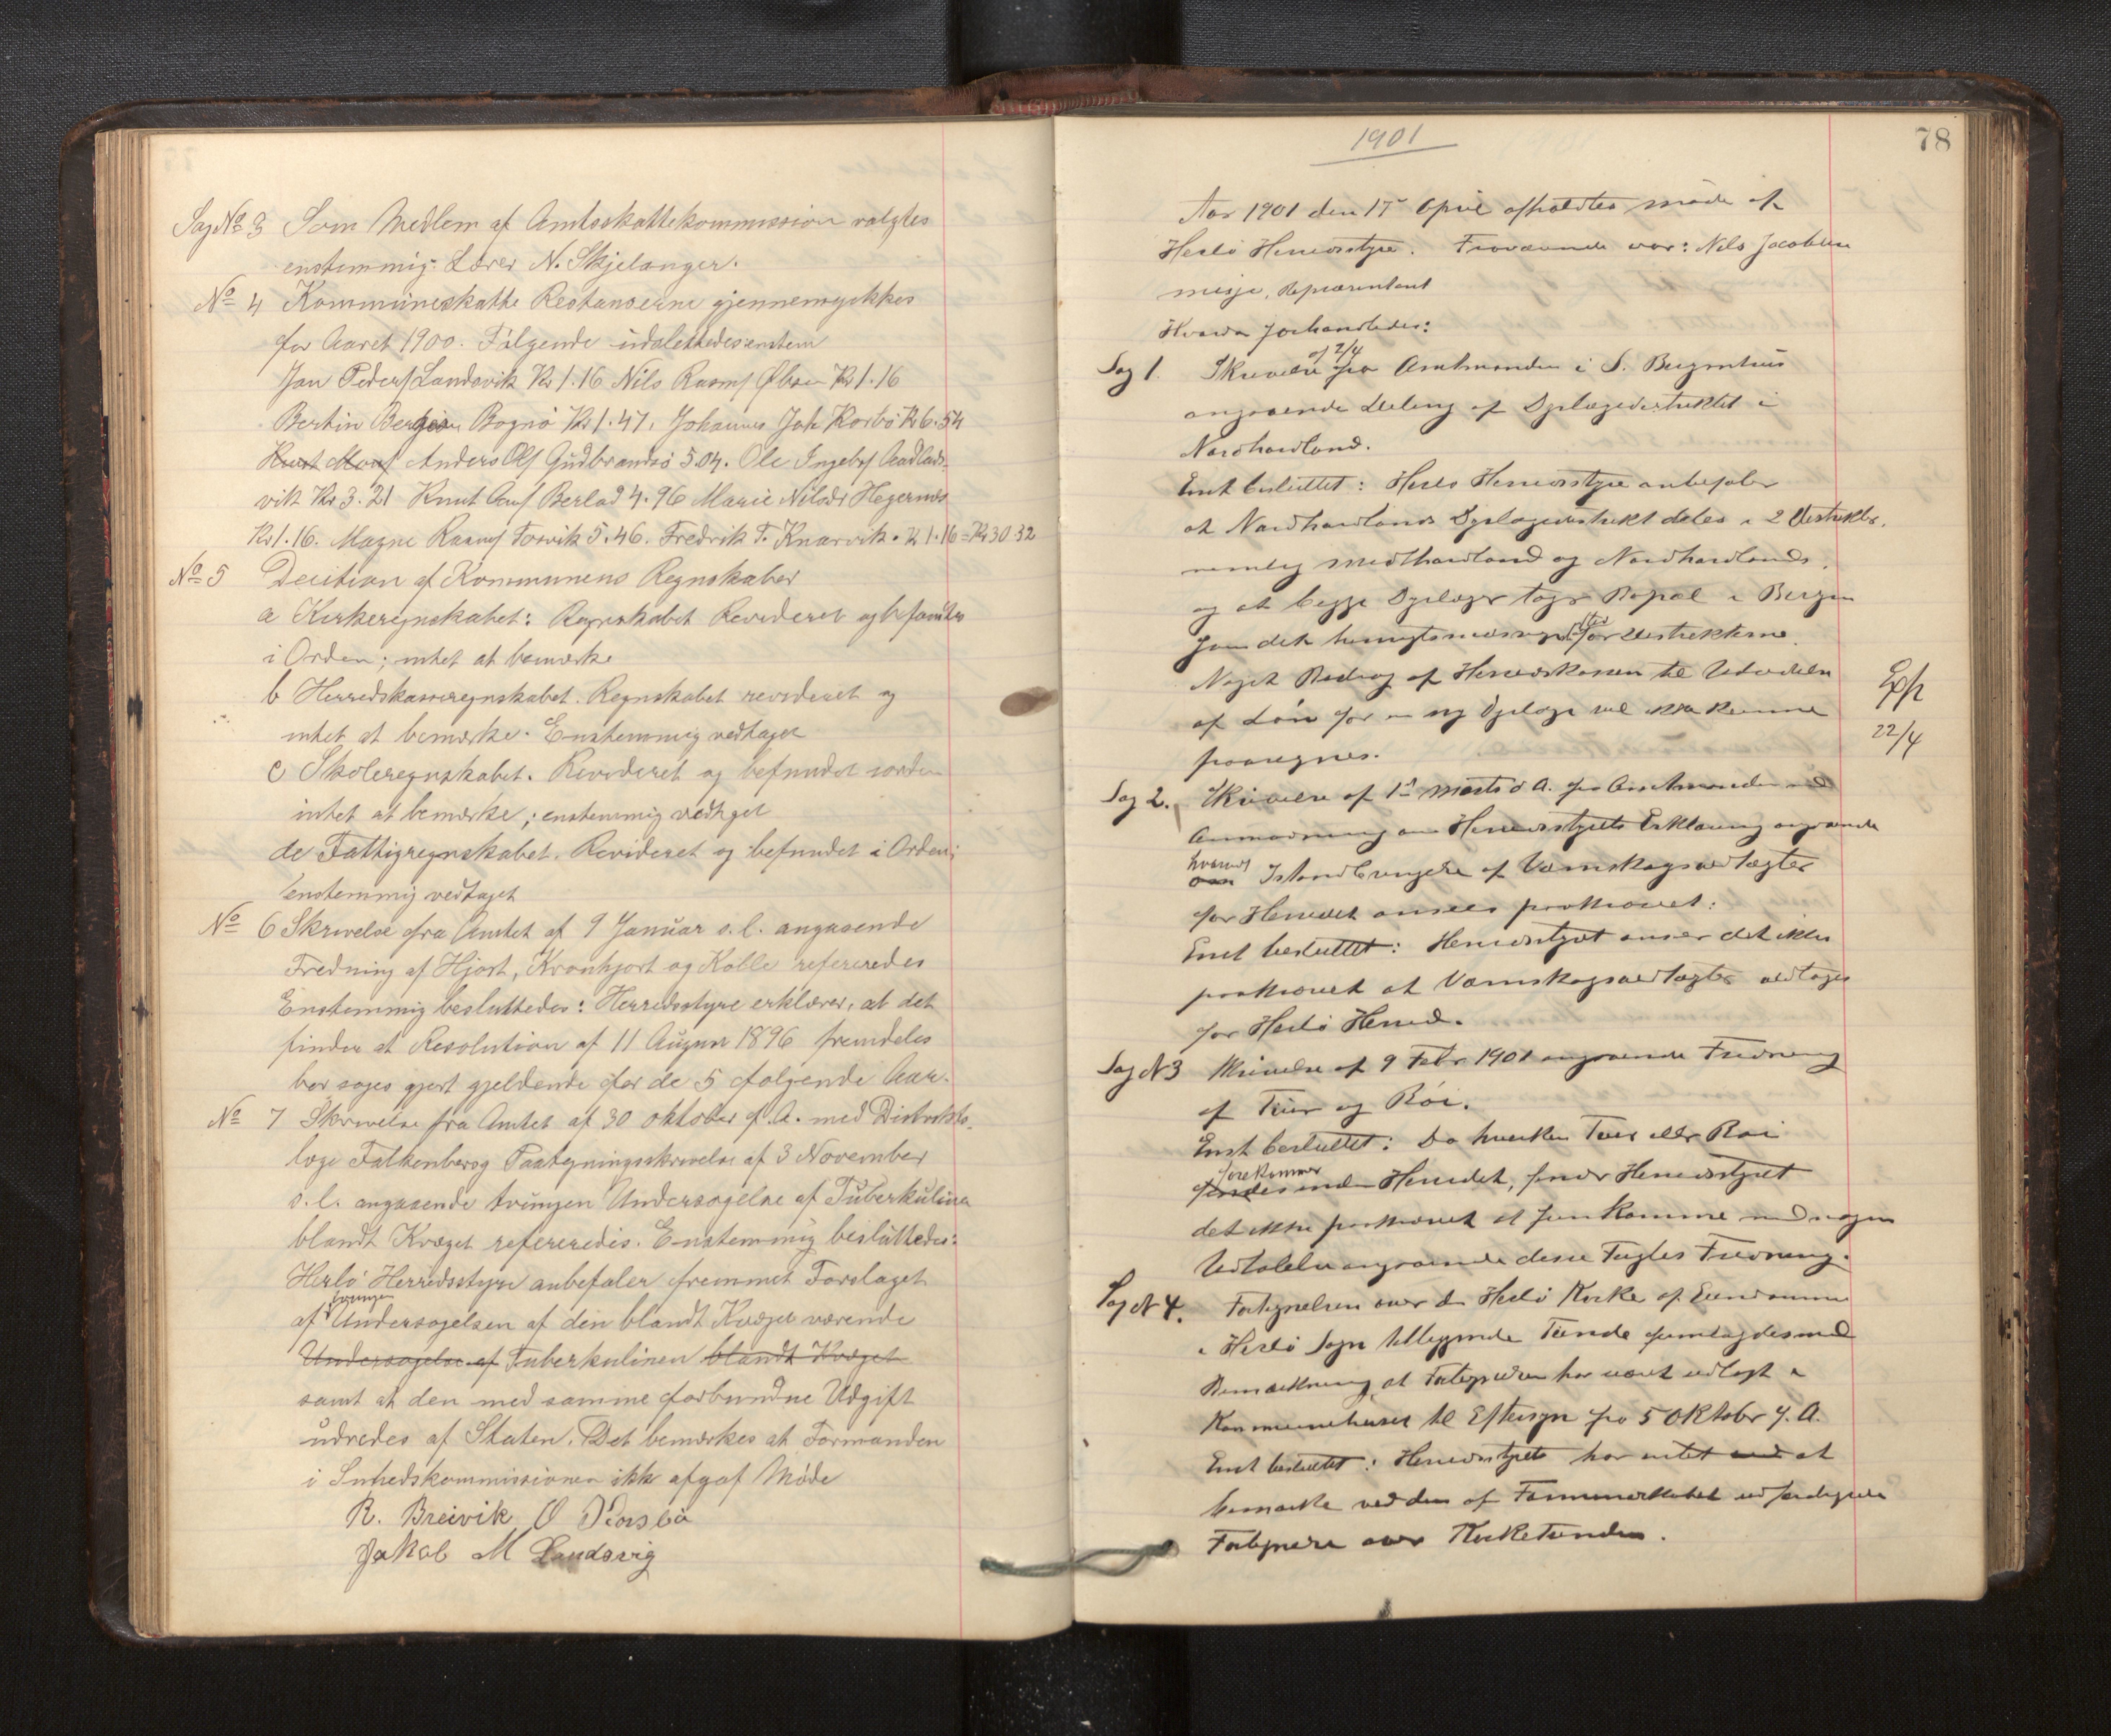 Sag No 3 Som Medlem af Amtsskattekommission valgtes
enstemmig: Lærer N. Skjelanger.
No 4 Kommuneskatte Restanserne gjennemgikkes
for Aaret 1900. Følgende
Jan Peders Landsvik Kr 1.16 Nils Rasms Øbsen Kr 1.16
Bertin Bognø Kr 1.47, Johannes Joh Korbø Kr 6.54
Knut Mons Anders Ols Gudbrandsø 5.04. Ole Ingebr Aadlads-
vik Kr 3.21 Knut Berlad 4.96 Marie Nilsdr Hegernæs
Kr 1.16. Magne Rasms Tosvik 5.46. Fredrik T. Knarvik. Kr 1.16 = Kr 30.32
No 5 Decition af Kommunens Regnskaber
a Kirkeregnskabet: Regnskabet Revideret og befandtes
i Orden; intet at bemærke
b Herredskasseregnskabet. Regnskabet revideret og
intet at bemærke. Enstemmig vedtaget
c Skoleregnskabet. Revideret og befundet iorden
intet at bemærke; enstemmig vedtaget
de Fattigregnskabet. Revideret og befundet i Orden;
enstemmig vedtaget
No 6 Skrivelse fra Amtet af 9 Januar s.l. angaaende
Fredning af Hjort, Kronhjort og Kolle refereredes
Enstemmig besluttedes: Herredsstyre erklærer, at det
finder at Resolution af 11 August 1896 fremdeles
bør søges gjort gjeldende for de 5 følgende Aar.
No 7 Skrivelse fra Amtet af 30 oktober f.A. med Distrikts-
læge Falkenberog Paategningsskrivelse af 3 November
s.l. angaaende tvungen Undersøgelse af Tuberkulinen
blandt Kvæget refereredes. Enstemmig besluttedes:
Herlø Herredsstyre anbefaler fremmet Forslaget
tvungen
af Undersøgelsen af den blandt Kvæget værende
Undersøgelse af Tuberkulinen blandt Kvæget
samt at den med samme forbundne Udgift
udredes af Staten. Det bemærkes at Formanden
i Sunhedskommissionen ikk afgaf Møde
R. Breivik O
Jakob M Landsvig
1901
78
Aar 1901 den 17de April afholdtes møde af
Herlø Herredsstyre. Fraværende var: Nils Jacobsen
misje, Repræsentant
Hvorda forhandledes:
af 2/4
Sag 1. Skrivelse fra Amtmanden i S. Bergenhus
angaaende Deling af Dyrlægedistriktet i
Nordhordland.
Enst besluttet: Herlø Herredsstyre anbefaler
at Nordhordlands Dyrlægedistrikt deles i 2 Distrikter,
nemlig Midthordland og Nordhordlands,
og at begge Dyrlæger tager Bopæl i Bergen
som det hensigtsmæssigste Sted for Distrikterne.
Noget Bidrag af Herredskassen til Udredelse
af Løn for en ny Dyrlæge vil ikke kunne
paaregnes.
Exp
22/4
Sag 2. Skrivelse af 1ste Marts d A. fra Amtmanden med
Anmodning om Herredsstyrets Erklæring angaaende
hvorvidt
om Istandbringelse af Værnskogsvedtægter
for Herredet ansees paakrævet:
Enst besluttet: Herredsstyret anser det ikke
paakrævet at Værnskogsvedtægter vedtages
for Herlø Herred.
Sag N 3 Skrivelse af 9 Febr 1901 angaaende Fredning
af Tiur og Röi.
Enst besluttet: Da hverken Tiur eller Røi
forekommer
findes inden Herredet, finder Herredsstyret
det ikke paakrævet at fremkomme med nogen
Udtalelse angaaende disse Fugles Fredning.
Sag N 4. Fortegnelsen over de Herlø Kirke af Eiendomme
i Herlø Sogn tilliggende Tiende fremlagdes med
Bemærkning, at Fortegnelsen har været udlagt i
Kommunehuset til Eftersyn fra 5 Oktober f. A.
Enst besluttet: Herredsstyret har intet ved at
bemærke ved den af Formandskabet udfærdigede
Fortegnelse over Kirketienden.